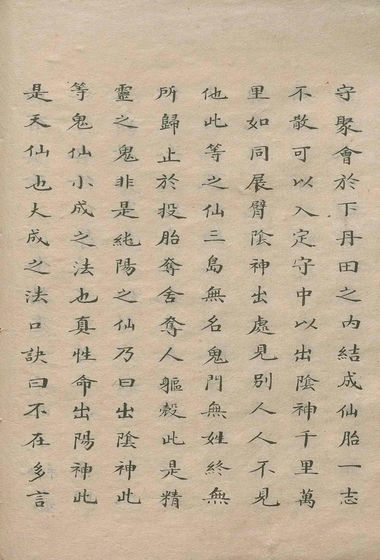 守聚會於下丹田之内結成仙胎一志
不散可以入定守中以出陰神千里萬
里如同展臂陰神出處見别人人不見
他此等之仙三島無名鬼門無姓終無
所歸止於投胎奪舍奪人軀殼此是精
靈之鬼非是純陽之仙乃曰出陰神此
等鬼仙小成之法也真性命出陽神此
是天仙也大成之法口訣曰不在多言